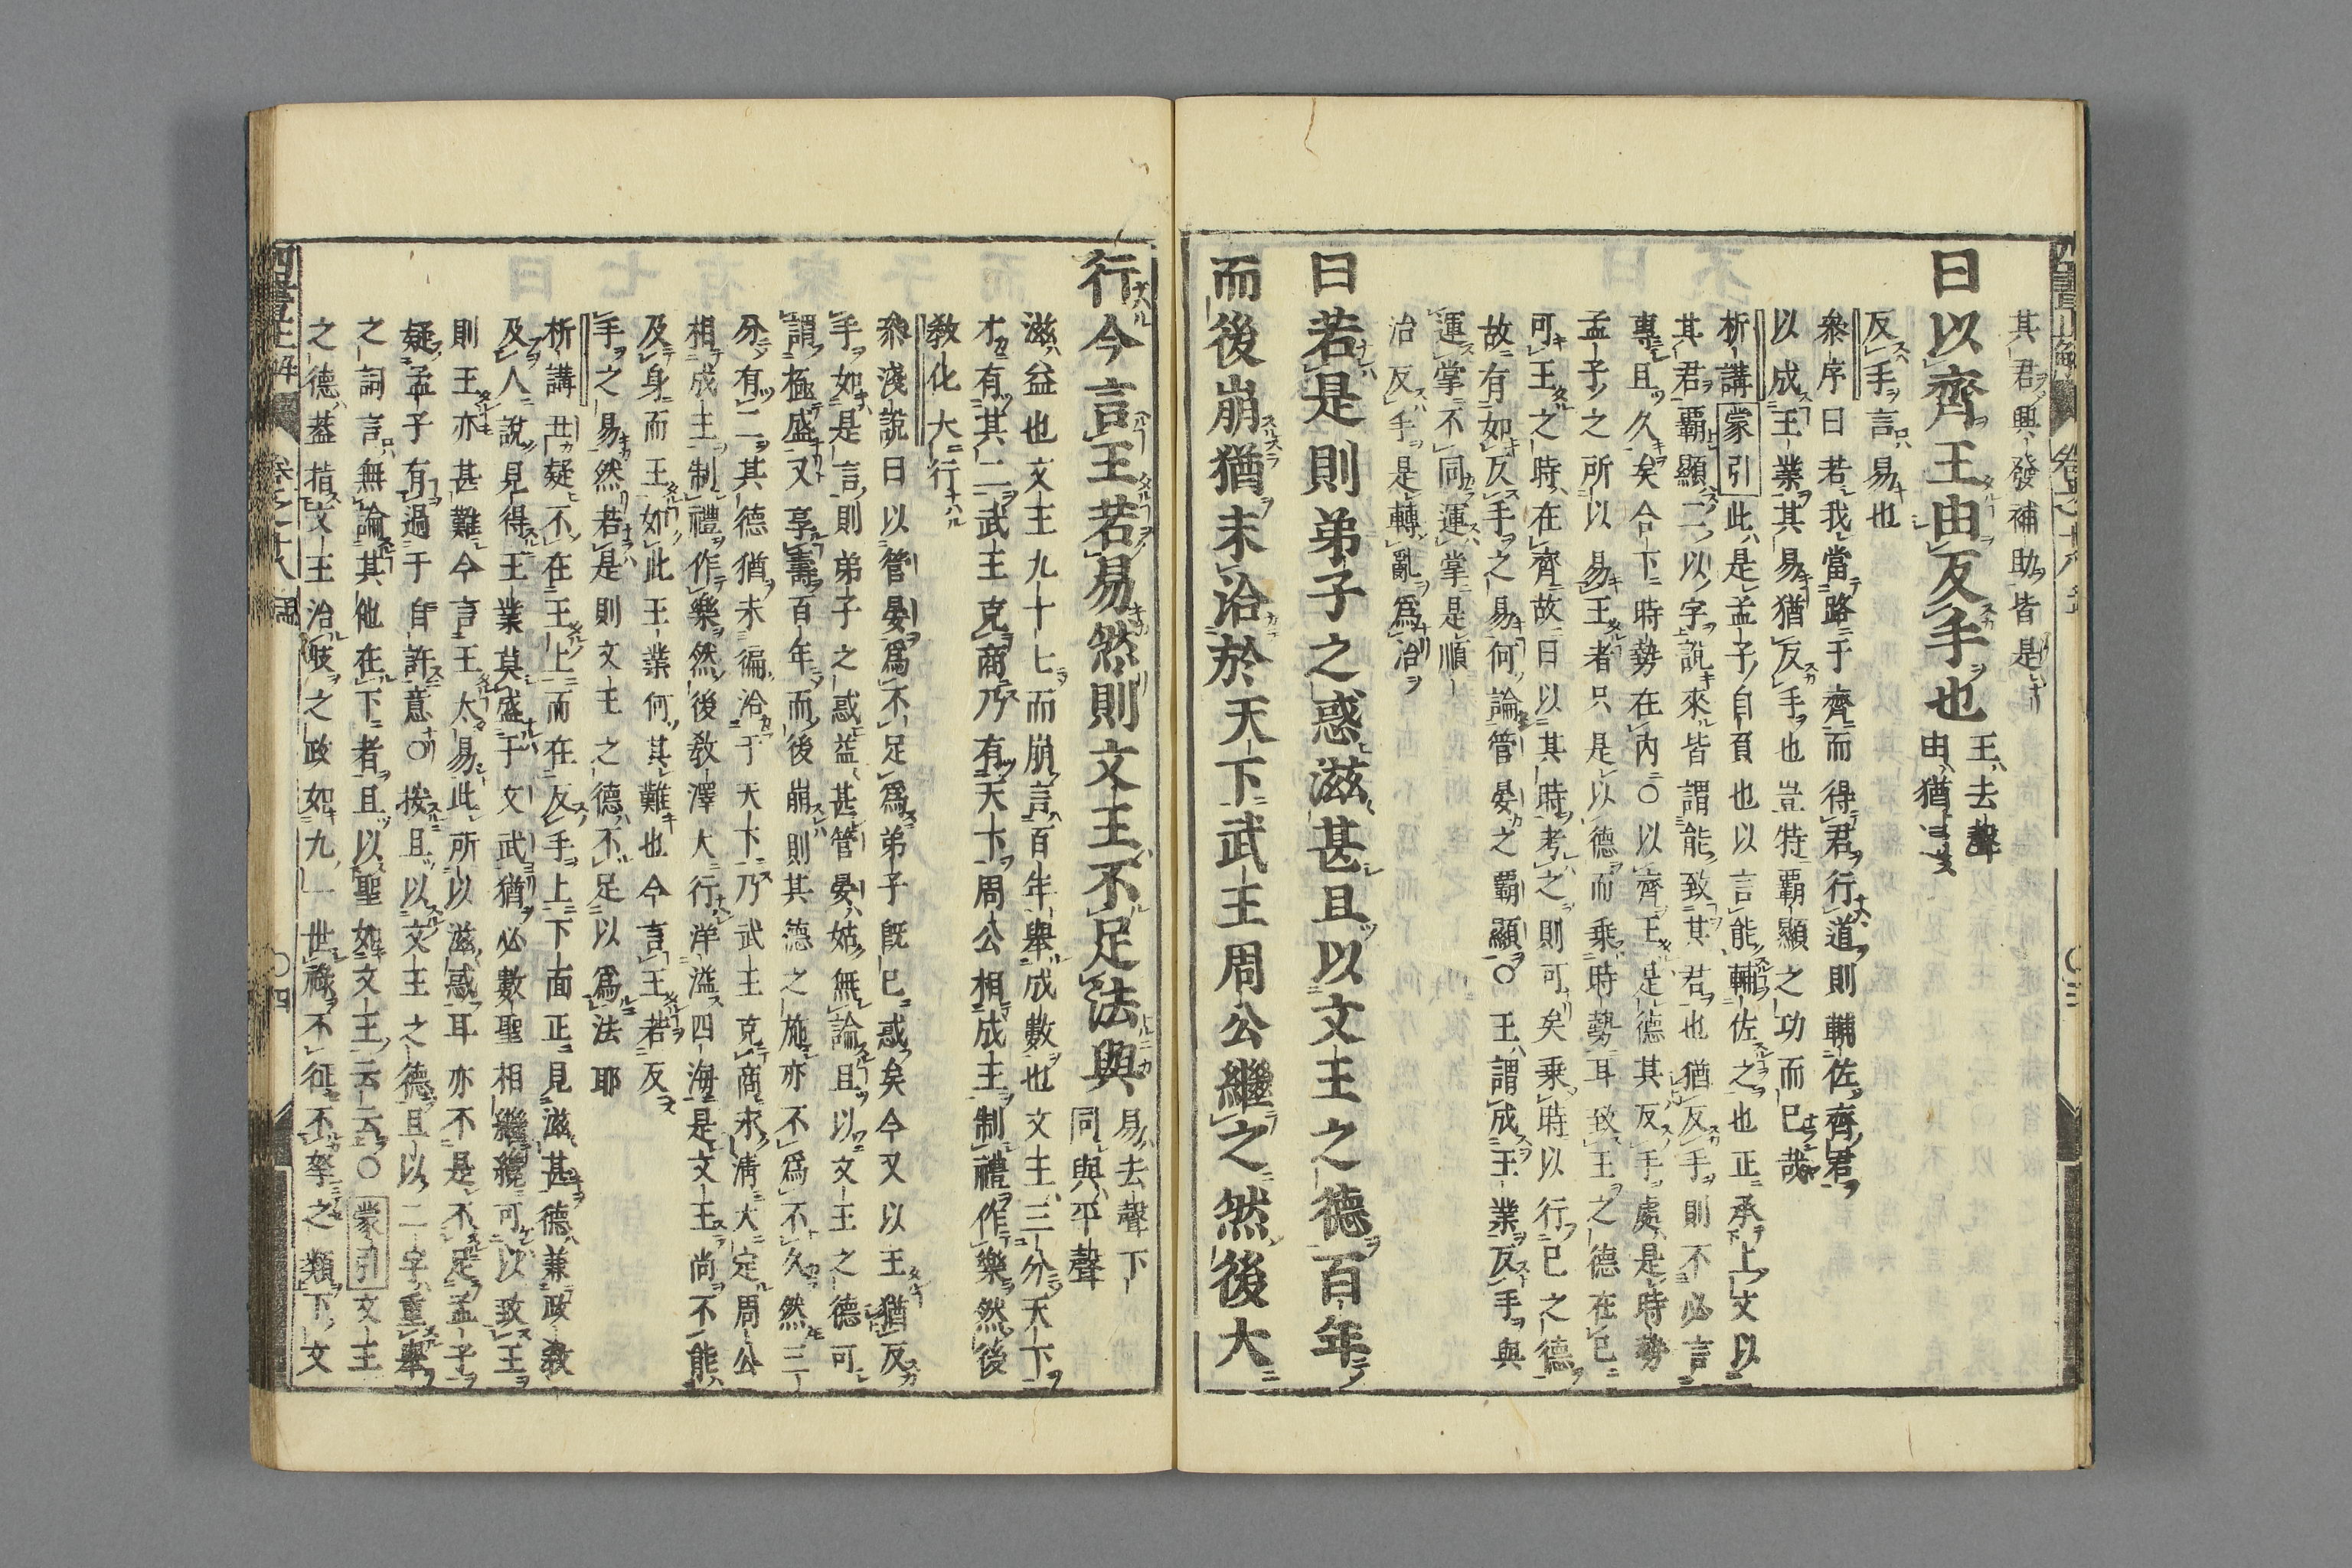 其君興發補助皆是
曰以齊王由反手也 王去聲 由猶通
反手言易也
叅序曰若我當路于齊而得君行道則輔佐齊君
以成王業其易猶反手也豈特覇顯之功而已哉
析講蒙引此是孟子自負也以言能輔佐之也正承上文以
其君覇顯二以字說來皆謂能致其君也猶反手則不必言
專且久矣合下時勢在内○以齊王是德其反手處是時勢
孟子之所以易王者只是以德而乘時勢耳致王之德在已
可王之時在齊故曰以其時考之則可矣乘時以行已之德
故有如反手之易何論管晏之覇顯○王謂成王業反手與
運掌不同運掌是順
治反手是轉亂爲治
曰若是則弟子之惑滋甚且以文王之德百年
而後崩猶未洽於天下武王周公繼之然後大
行今言王若易然則文王不足法與 易去聲下 同與平聲
滋益也文王九十七而崩言百年舉成數也文王三分天下
才有其二武王克商乃有天下周公相成王制禮作樂然後
教化大行
叅淺說曰以管晏爲不足爲弟子旣已惑矣今又以王猶反
手如是言則弟子之惑益甚管晏姑無論且以文王之德可
謂極盛又享壽百年而後崩則其德之施亦不爲不久然三
分有二其德猶未徧洽于天下乃武王克商求淸大定周公
相成王制禮作樂然後敎澤大行洋溢四海是文王尚不能
及身而王如此王業何其難也今言王若反
手之易然若是則文王之德不足以爲法耶
析講丑疑不在王上而在反手上下面正見滋甚德兼政敎
及人說見得王業莫盛于文武猶必數聖相繼纔可以致王
則王亦甚難今言王太易此所以滋惑耳亦不是不足孟子
疑孟子有過于自許意○按且以文王之德且以二字重舉
之詞言無論其他在下者且以聖如文王云云○蒙引文王
之德葢指文王治岐之政如九一世祿不征不孥之類下文